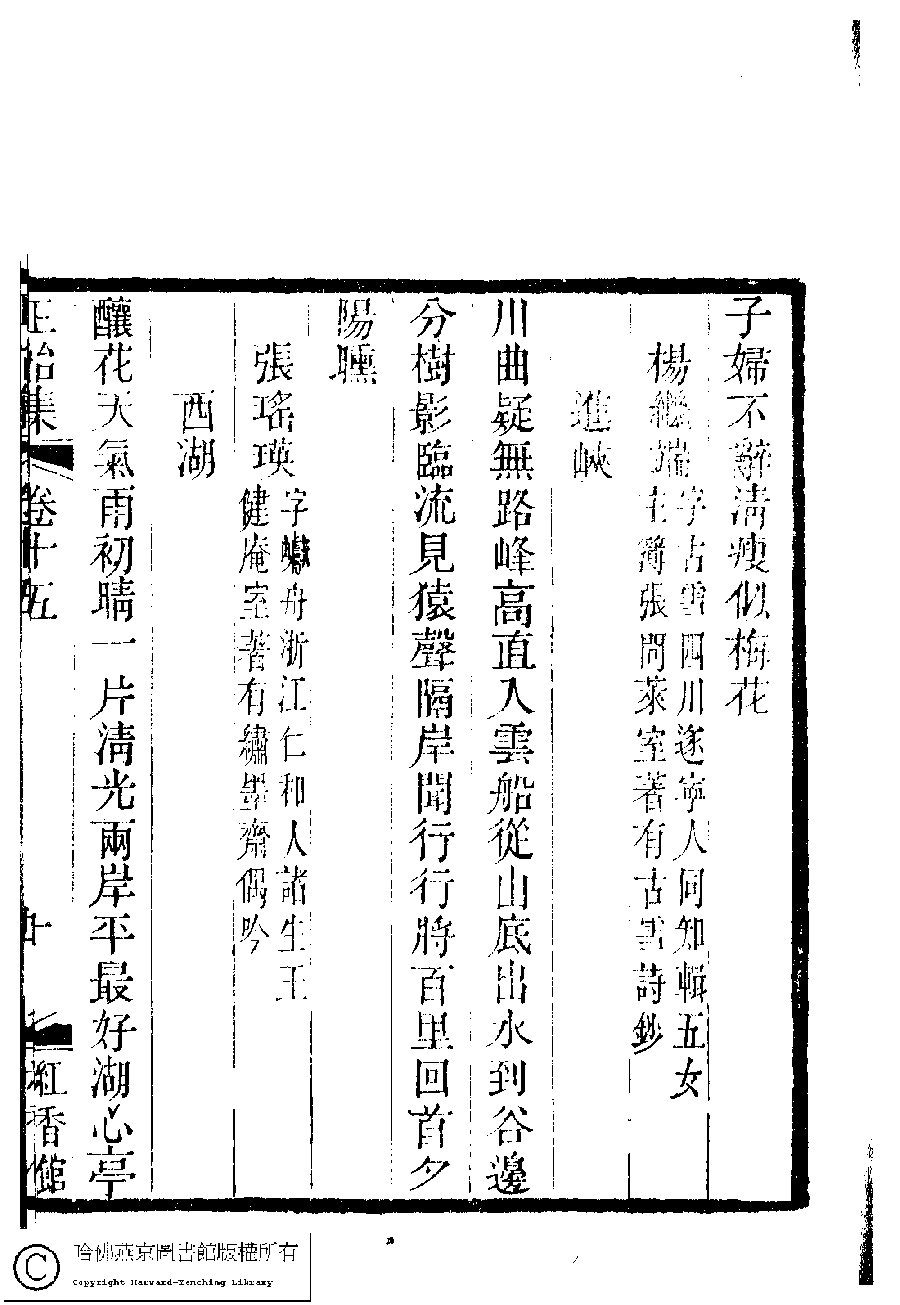 子婦不辭淸瘦似梅花
楊繼端 字古雪四川遂寧人同知輯五女
主簿張問萊室著有古雪詩鈔
進峽
川曲疑無路峰高直入雲船從山底出水到谷邊
分樹影臨流見猿聲隔岸聞行行將百里回首夕
陽曛
張瑤瑛 字 舟浙江仁和人諸生王
健庵室著有繡墨齋偶吟
西湖
釀花天氣雨初晴一片淸光兩岸平最好湖心亭
正始集 卷十五 十 紅香館
哈佛燕京圖書館版權所有
Copyright Harvard-Yenching Library